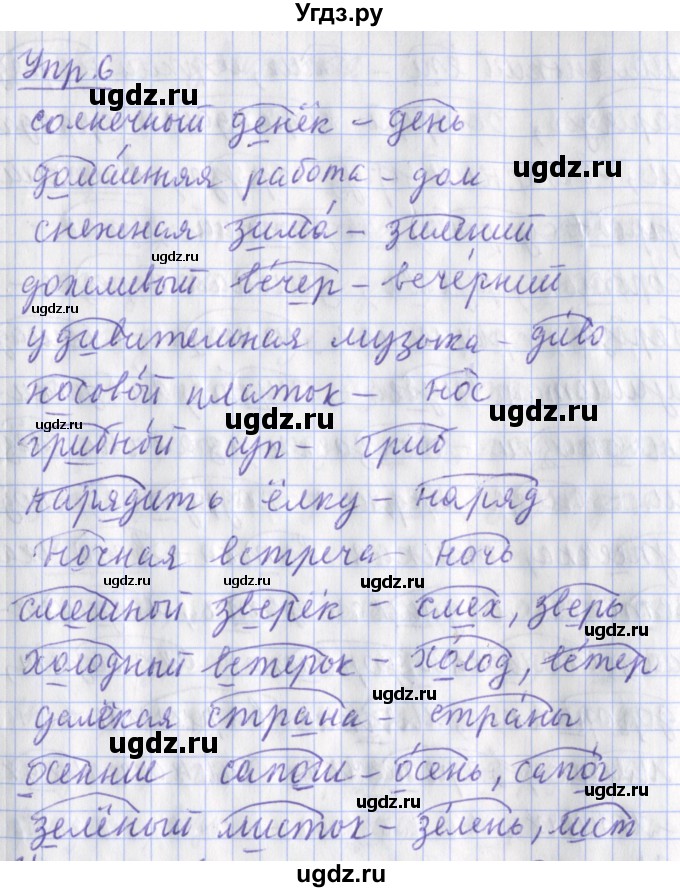 Угдз.ру
Упр.6
ugdz.ru
солнечный денёк – день
ugdz.ru
домашняя работа – дом
снежная зима́ – зимний
ugdz.ru
дождливый ве́чер – вече́рний
ugdz.ru
удивительная музыка – ди́во
носово́й платок – нос
ugdz.ru
ugdz.ru
ugdz.ru
грибно́й суп – гриб
нарядить ёлку – наряд
ночная встреча – ночь
ugdz.ru
ugdz.ru
ugdz.ru
смешной зверёк – смех, зверь
ugdz.ru
холодный ветерок – хо́лод, ве́тер
ugdz.ru
далёкая страна – стра́ны
ugdz.ru
осенние сапоги – о́сень, сапо́г
ugdz.ru
зелёный листок – зе́лень, лист
ugdz.ru
ugdz.ru